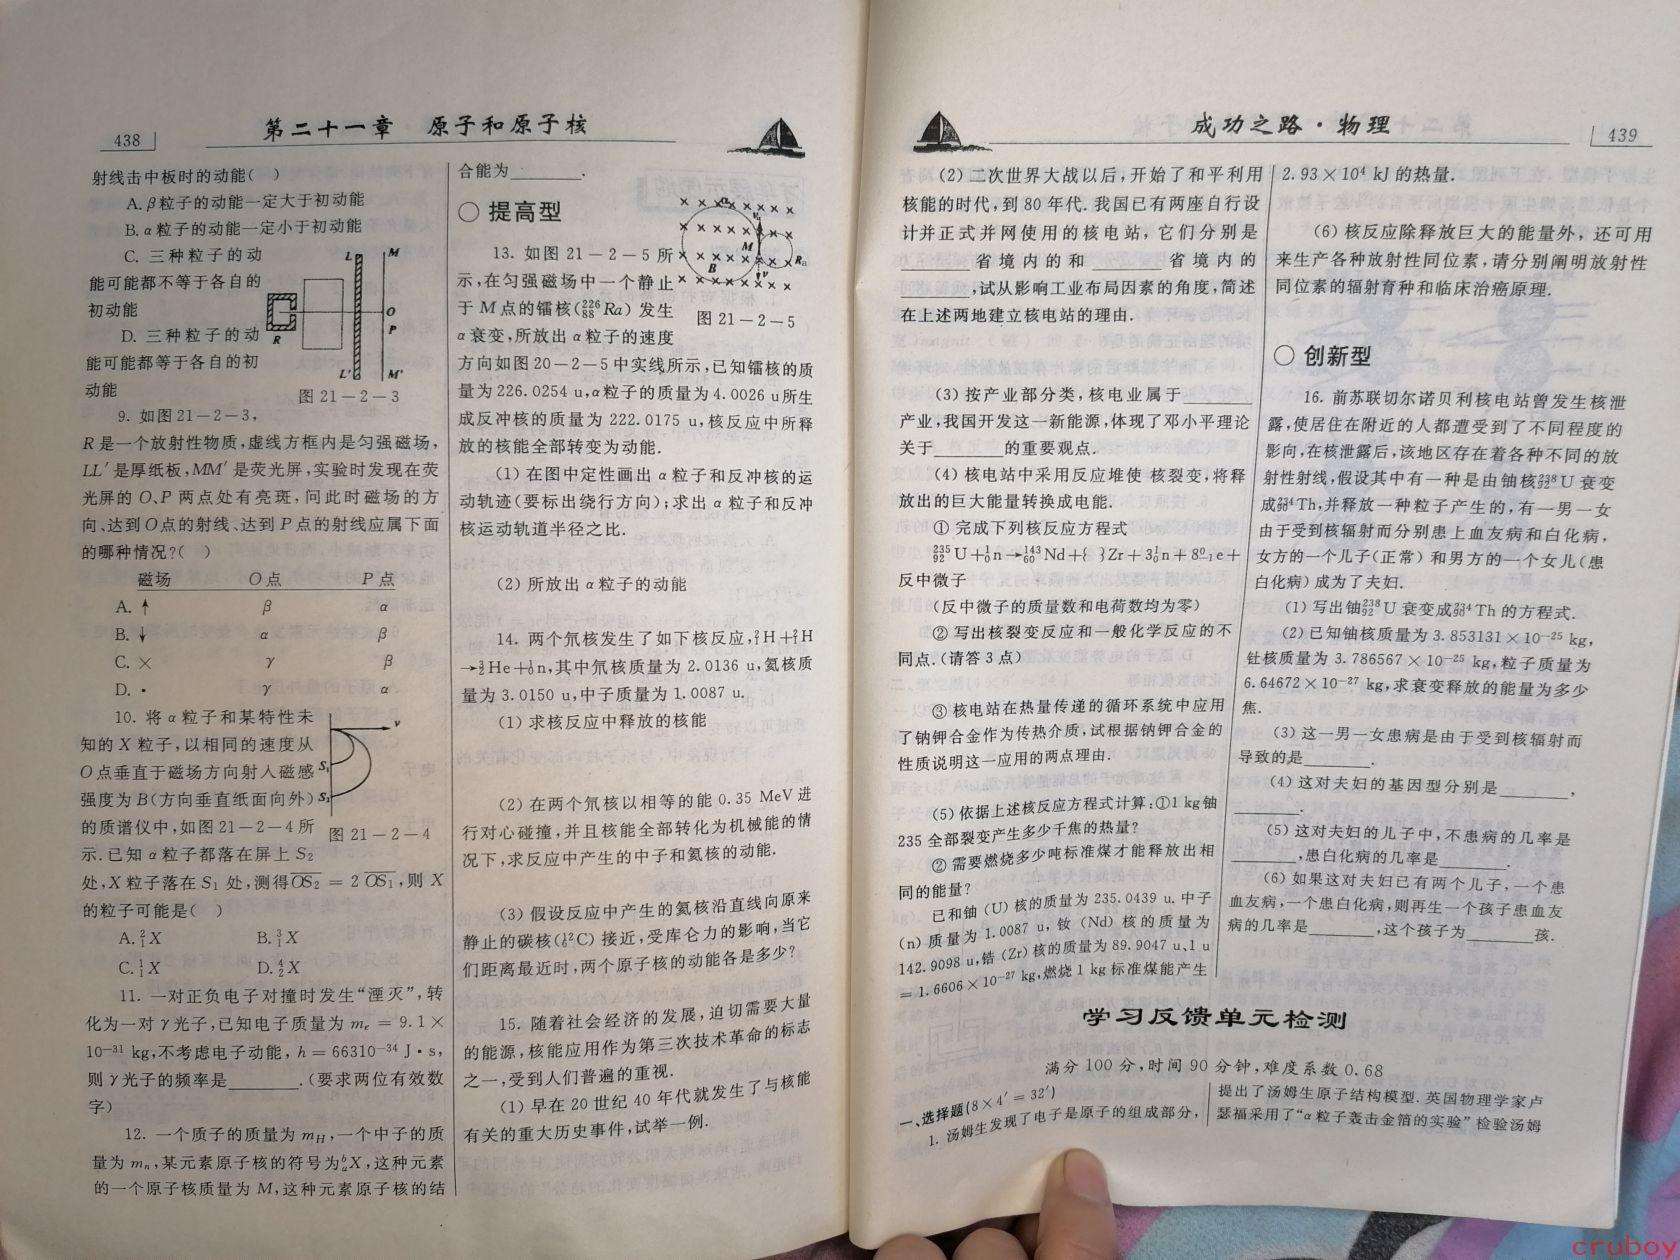 438
第二十一章 原子和原子核
射线击中板时的动能( )
A. β粒子的动能一定大于初动能
B. α粒子的动能一定小于初动能
C. 三种粒子的动
能可能都不等于各自的
初动能
D. 三种粒子的动
能可能都等于各自的初
动能
L M
O
P
R
L′ M′
图 21-2-3
9. 如图21-2-3,
R是一个放射性物质,虚线方框内是匀强磁场,
LL′是厚纸板,MM′是荧光屏,实验时发现在荧
光屏的 O、P 两点处有亮斑,问此时磁场的方
向、达到O点的射线、达到P点的射线应属下面
的哪种情况?( )
磁场 O点 P点
A. ↑ β α
B. ↓ α β
C. × γ β
D. · γ α
10. 将α粒子和某特性未
知的 X 粒子,以相同的速度从
O点垂直于磁场方向射入磁感
强度为B(方向垂直纸面向外)
的质谱仪中,如图21-2-4所
示.已知α粒子都落在屏上S₂
v
S₁
S₂
图 21-2-4
处,X粒子落在S₁处,测得OS₂ = 2 OS₁,则 X
的粒子可能是( )
A. ²₁X B. ³₁X
C. ¹₁X D. ⁴₂X
11. 一对正负电子对撞时发生“湮灭”,转
化为一对γ光子,已知电子质量为 mₑ = 9.1×
10⁻³¹ kg,不考虑电子动能, h = 66310⁻³⁴ J·s,
则γ光子的频率是______.(要求两位有效数
字)
12. 一个质子的质量为mH,一个中子的质
量为mₙ,某元素原子核的符号为ᵇₐX,这种元素
的一个原子核质量为M,这种元素原子核的结
合能为______.
○ 提高型
13. 如图 21-2-5 所
示,在匀强磁场中一个静止
于M点的镭核(²²⁶₈₈Ra)发生
α衰变,所放出α粒子的速度
α
M
B
v
Ra
图 21-2-5
方向如图20-2-5中实线所示,已知镭核的质
量为226.0254 u,α粒子的质量为4.0026 u所生
成反冲核的质量为222.0175 u,核反应中所释
放的核能全部转变为动能.
(1) 在图中定性画出α粒子和反冲核的运
动轨迹(要标出绕行方向);求出α粒子和反冲
核运动轨道半径之比.
(2) 所放出α粒子的动能
14. 两个氘核发生了如下核反应,²₁H+²₁H
→³₂He+¹₀n,其中氘核质量为2.0136 u,氦核质
量为3.0150 u,中子质量为1.0087 u.
(1) 求核反应中释放的核能
(2) 在两个氘核以相等的能0.35 MeV进
行对心碰撞,并且核能全部转化为机械能的情
况下,求反应中产生的中子和氦核的动能.
(3) 假设反应中产生的氦核沿直线向原来
静止的碳核(¹²₆C)接近,受库仑力的影响,当它
们距离最近时,两个原子核的动能各是多少?
15. 随着社会经济的发展,迫切需要大量
的能源,核能应用作为第三次技术革命的标志
之一,受到人们普遍的重视.
(1) 早在20世纪40年代就发生了与核能
有关的重大历史事件,试举一例.
成功之路·物理
439
(2) 二次世界大战以后,开始了和平利用
核能的时代,到80年代.我国已有两座自行设
计并正式并网使用的核电站,它们分别是
______省境内的和______省境内的
______,试从影响工业布局因素的角度,简述
在上述两地建立核电站的理由.
(3) 按产业部分类,核电业属于______
产业,我国开发这一新能源,体现了邓小平理论
关于______的重要观点.
(4) 核电站中采用反应堆使 核裂变,将释
放出的巨大能量转换成电能.
① 完成下列核反应方程式
²³⁵₉₂U+¹₀n→¹⁴³₆₀Nd+{ }Zr+3¹₀n+8⁰₋₁e+
反中微子
(反中微子的质量数和电荷数均为零)
② 写出核裂变反应和一般化学反应的不
同点.(请答3点)
③ 核电站在热量传递的循环系统中应用
了钠钾合金作为传热介质,试根据钠钾合金的
性质说明这一应用的两点理由.
(5) 依据上述核反应方程式计算:①1 kg铀
235全部裂变产生多少千焦的热量?
② 需要燃烧多少吨标准煤才能释放出相
同的能量?
已和铀(U)核的质量为235.0439 u.中子
(n)质量为1.0087 u,钕(Nd)核的质量为
142.9098 u,锆(Zr)核的质量为89.9047 u、1 u
= 1.6606×10⁻²⁷ kg,燃烧1 kg标准煤能产生
2.93×10⁴ kJ的热量.
(6) 核反应除释放巨大的能量外,还可用
来生产各种放射性同位素,请分别阐明放射性
同位素的辐射育种和临床治癌原理.
○ 创新型
16. 前苏联切尔诺贝利核电站曾发生核泄
露,使居住在附近的人都遭受到了不同程度的
影向,在核泄露后,该地区存在着各种不同的放
射性射线,假设其中有一种是由铀核²³⁸₉₂U衰变
成²³⁴₉₀Th,并释放一种粒子产生的,有一男一女
由于受到核辐射而分别患上血友病和白化病,
女方的一个儿子(正常)和男方的一个女儿(患
白化病)成为了夫妇.
(1) 写出铀²³⁸₉₂U衰变成²³⁴₉₀Th的方程式.
(2) 已知铀核质量为3.853131×10⁻²⁵ kg,
钍核质量为3.786567×10⁻²⁵ kg,粒子质量为
6.64672×10⁻²⁷ kg,求衰变释放的能量为多少
焦.
(3) 这一男一女患病是由于受到核辐射而
导致的是______.
(4) 这对夫妇的基因型分别是______,
______.
(5) 这对夫妇的儿子中,不患病的几率是
______,患白化病的几率是______.
(6) 如果这对夫妇已有两个儿子,一个患
血友病,一个患白化病,则再生一个孩子患血友
病的几率是______,这个孩子为______孩.
学习反馈单元检测
满分100分,时间90分钟,难度系数0.68
一、选择题(8×4′=32′)
1. 汤姆生发现了电子是原子的组成部分,
提出了汤姆生原子结构模型.英国物理学家卢
瑟福采用了“α粒子轰击金箔的实验”检验汤姆
cruboy